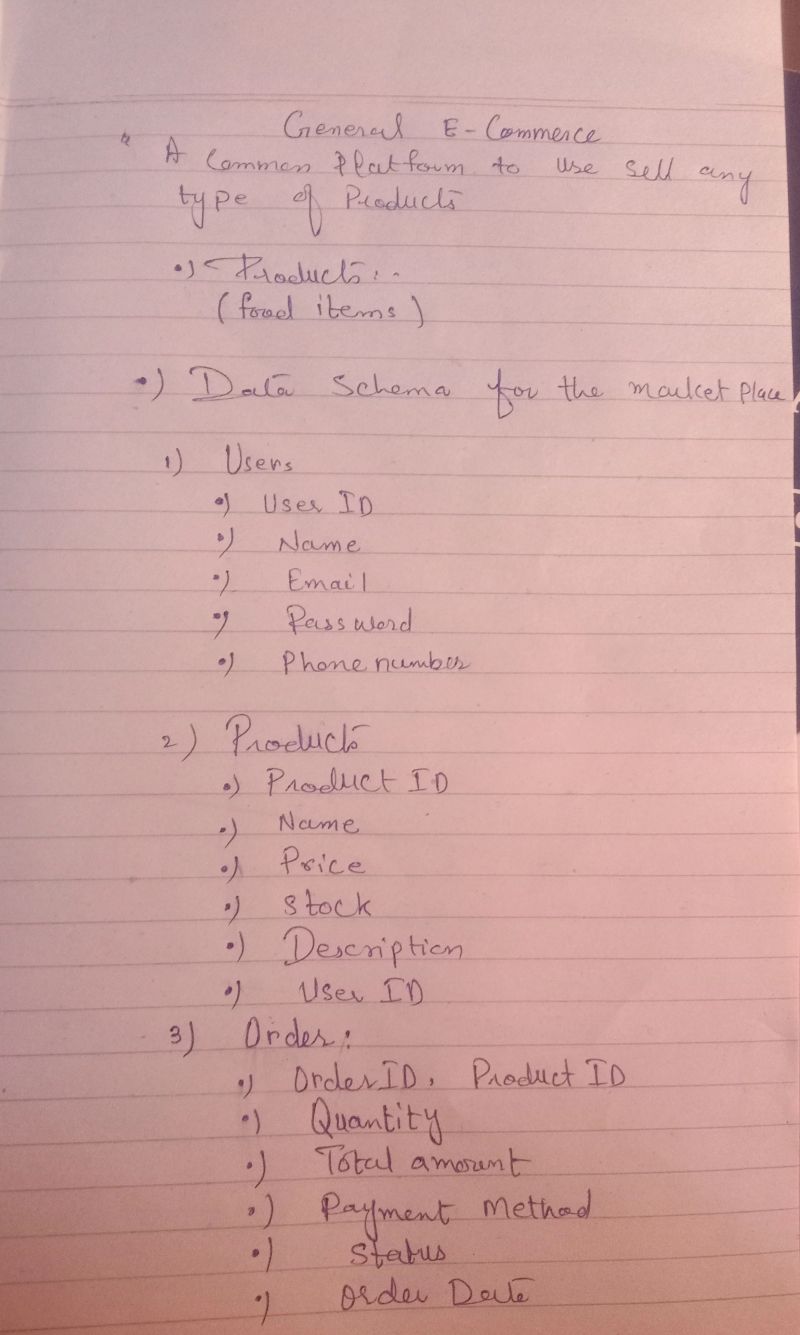 General E-Commerce
" A Common Platform to use sell any
type of Products
•) Products:-
(food items)
•) Data Schema for the market place
1) Users
•) User ID
•) Name
•) Email
•) Password
•) Phone number
2) Products
•) Product ID
•) Name
•) Price
•) Stock
•) Description
•) User ID
3) Order:
•) Order ID, Product ID
•) Quantity
•) Total amount
•) Payment Method
•) Status
•) Order Date